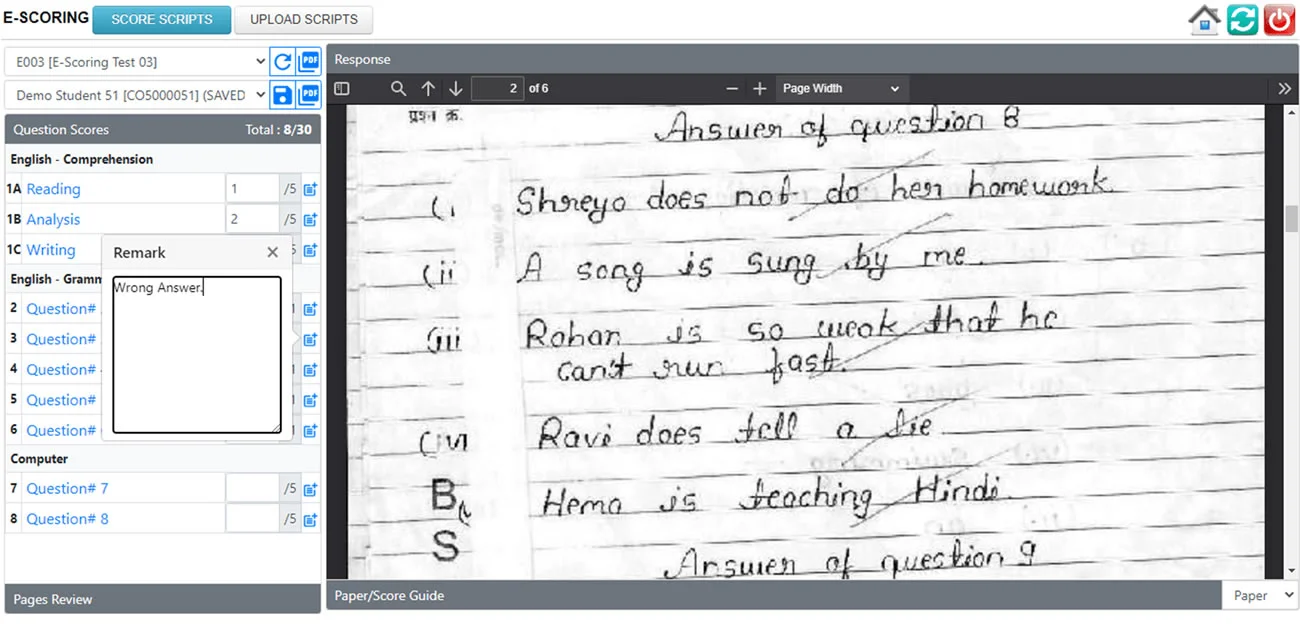 E-SCORING SCORE SCRIPTS UPLOAD SCRIPTS
E003 [E-Scoring Test 03] PDF
Demo Student 51 [CO5000051] (SAVED PDF
Question Scores Total : 8/30
English - Comprehension
1A Reading 1 /5
1B Analysis 2 /5
1C Writing 5
Remark
Wrong Answer.
English - Gramm
2 Question#
3 Question#
4 Question#
5 Question#
6 Question#
Computer
7 Question# 7 /5
8 Question# 8 /5
Pages Review
Response
2 of 6 Page Width
प्रश्न क्र.
Answer of question 8
(i Shreya does not do her homework.
(ii A song is sung by me.
(iii Rohan is so weak that he
can't run fast.
(iv Ravi does tell a lie
B Hema is teaching Hindi.
S
Answer of question 9
Paper/Score Guide Paper